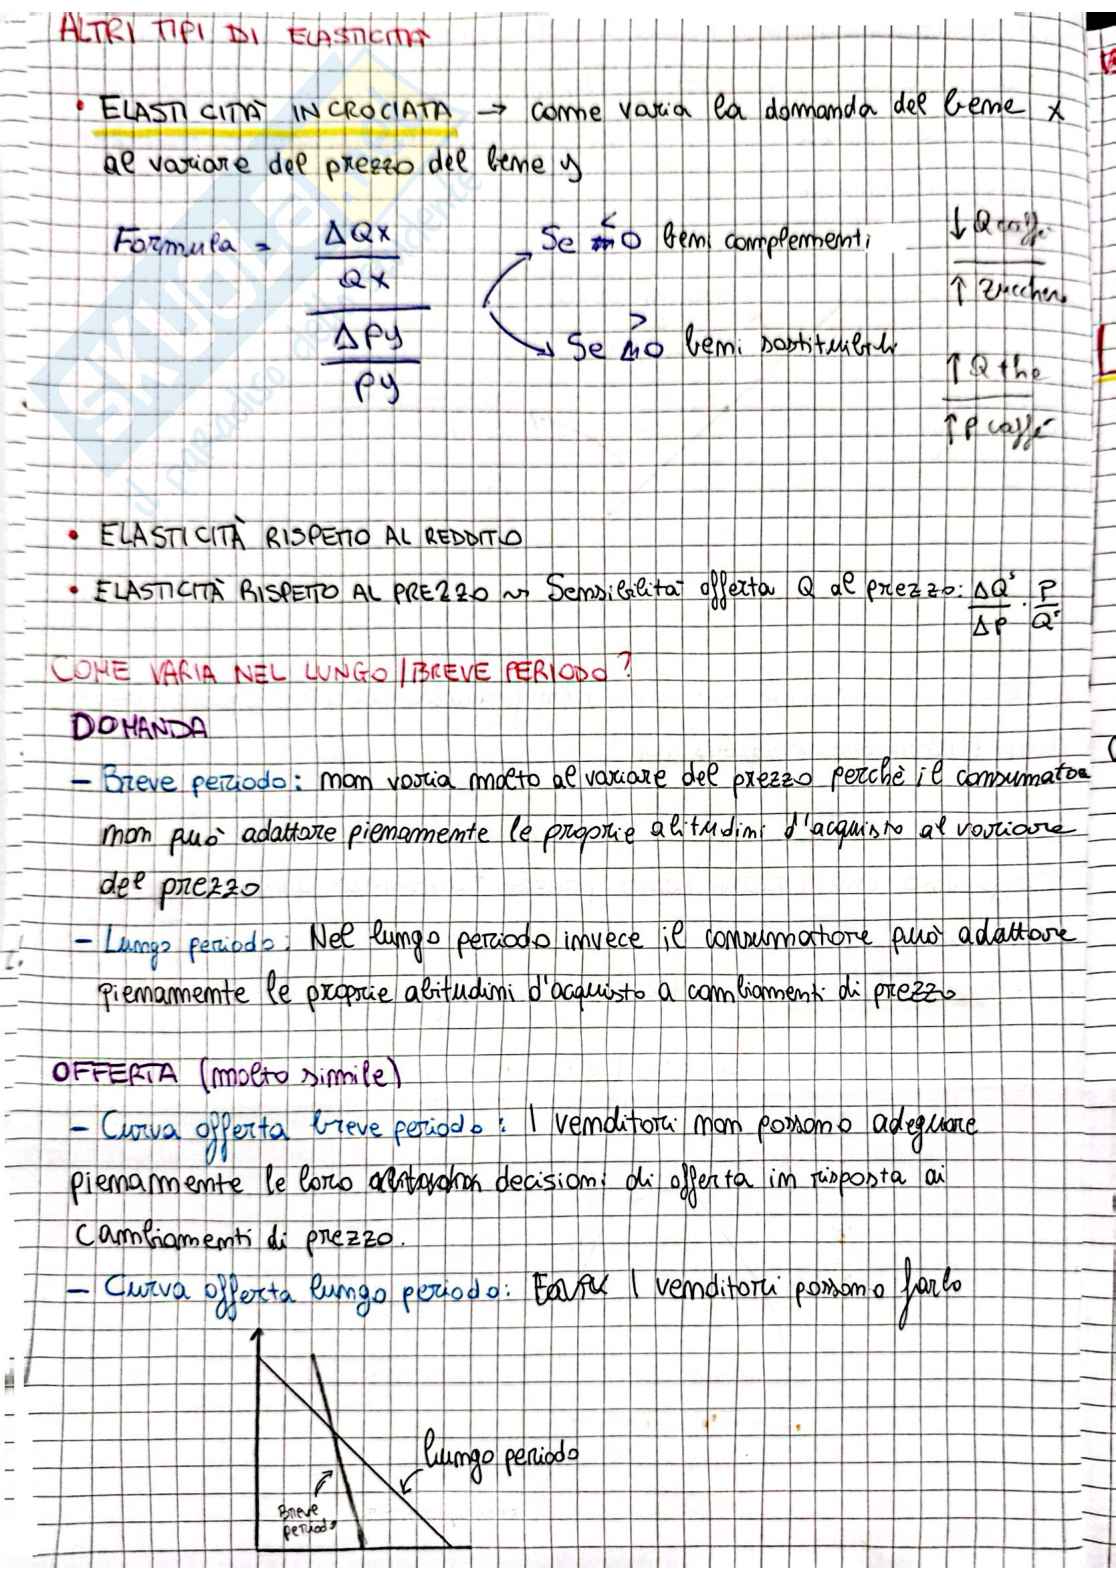 ALTRI TIPI DI ELASTICITÀ
• ELASTICITÀ INCROCIATA → come varia la domanda del bene x
al variare del prezzo del bene y
Formula = ΔQx / Qx / ΔPy / Py
Se < 0 beni complementi
↓ Q caffè / ↑ zucchero
Se > 0 beni sostituibili
↑ Q the / ↑ P caffè
• ELASTICITÀ RISPETTO AL REDDITO
• ELASTICITÀ RISPETTO AL PREZZO ~> Sensibilità offerta Q al prezzo: ΔQˢ/ΔP · P/Qˢ
COME VARIA NEL LUNGO/BREVE PERIODO?
DOMANDA
- Breve periodo: non varia molto al variare del prezzo perchè il consumatore
non può adattare pienamente le proprie abitudini d'acquisto al variare
del prezzo
- Lungo periodo: Nel lungo periodo invece il consumatore può adattare
pienamente le proprie abitudini d'acquisto a cambiamenti di prezzo
OFFERTA (molto simile)
- Curva offerta breve periodo: I venditori non possono adeguare
pienamente le loro decisioni di offerta in risposta ai
cambiamenti di prezzo.
- Curva offerta lungo periodo: I venditori possono farlo
lungo periodo
Breve
periodo
SKUOLA
il paradiso dello studente